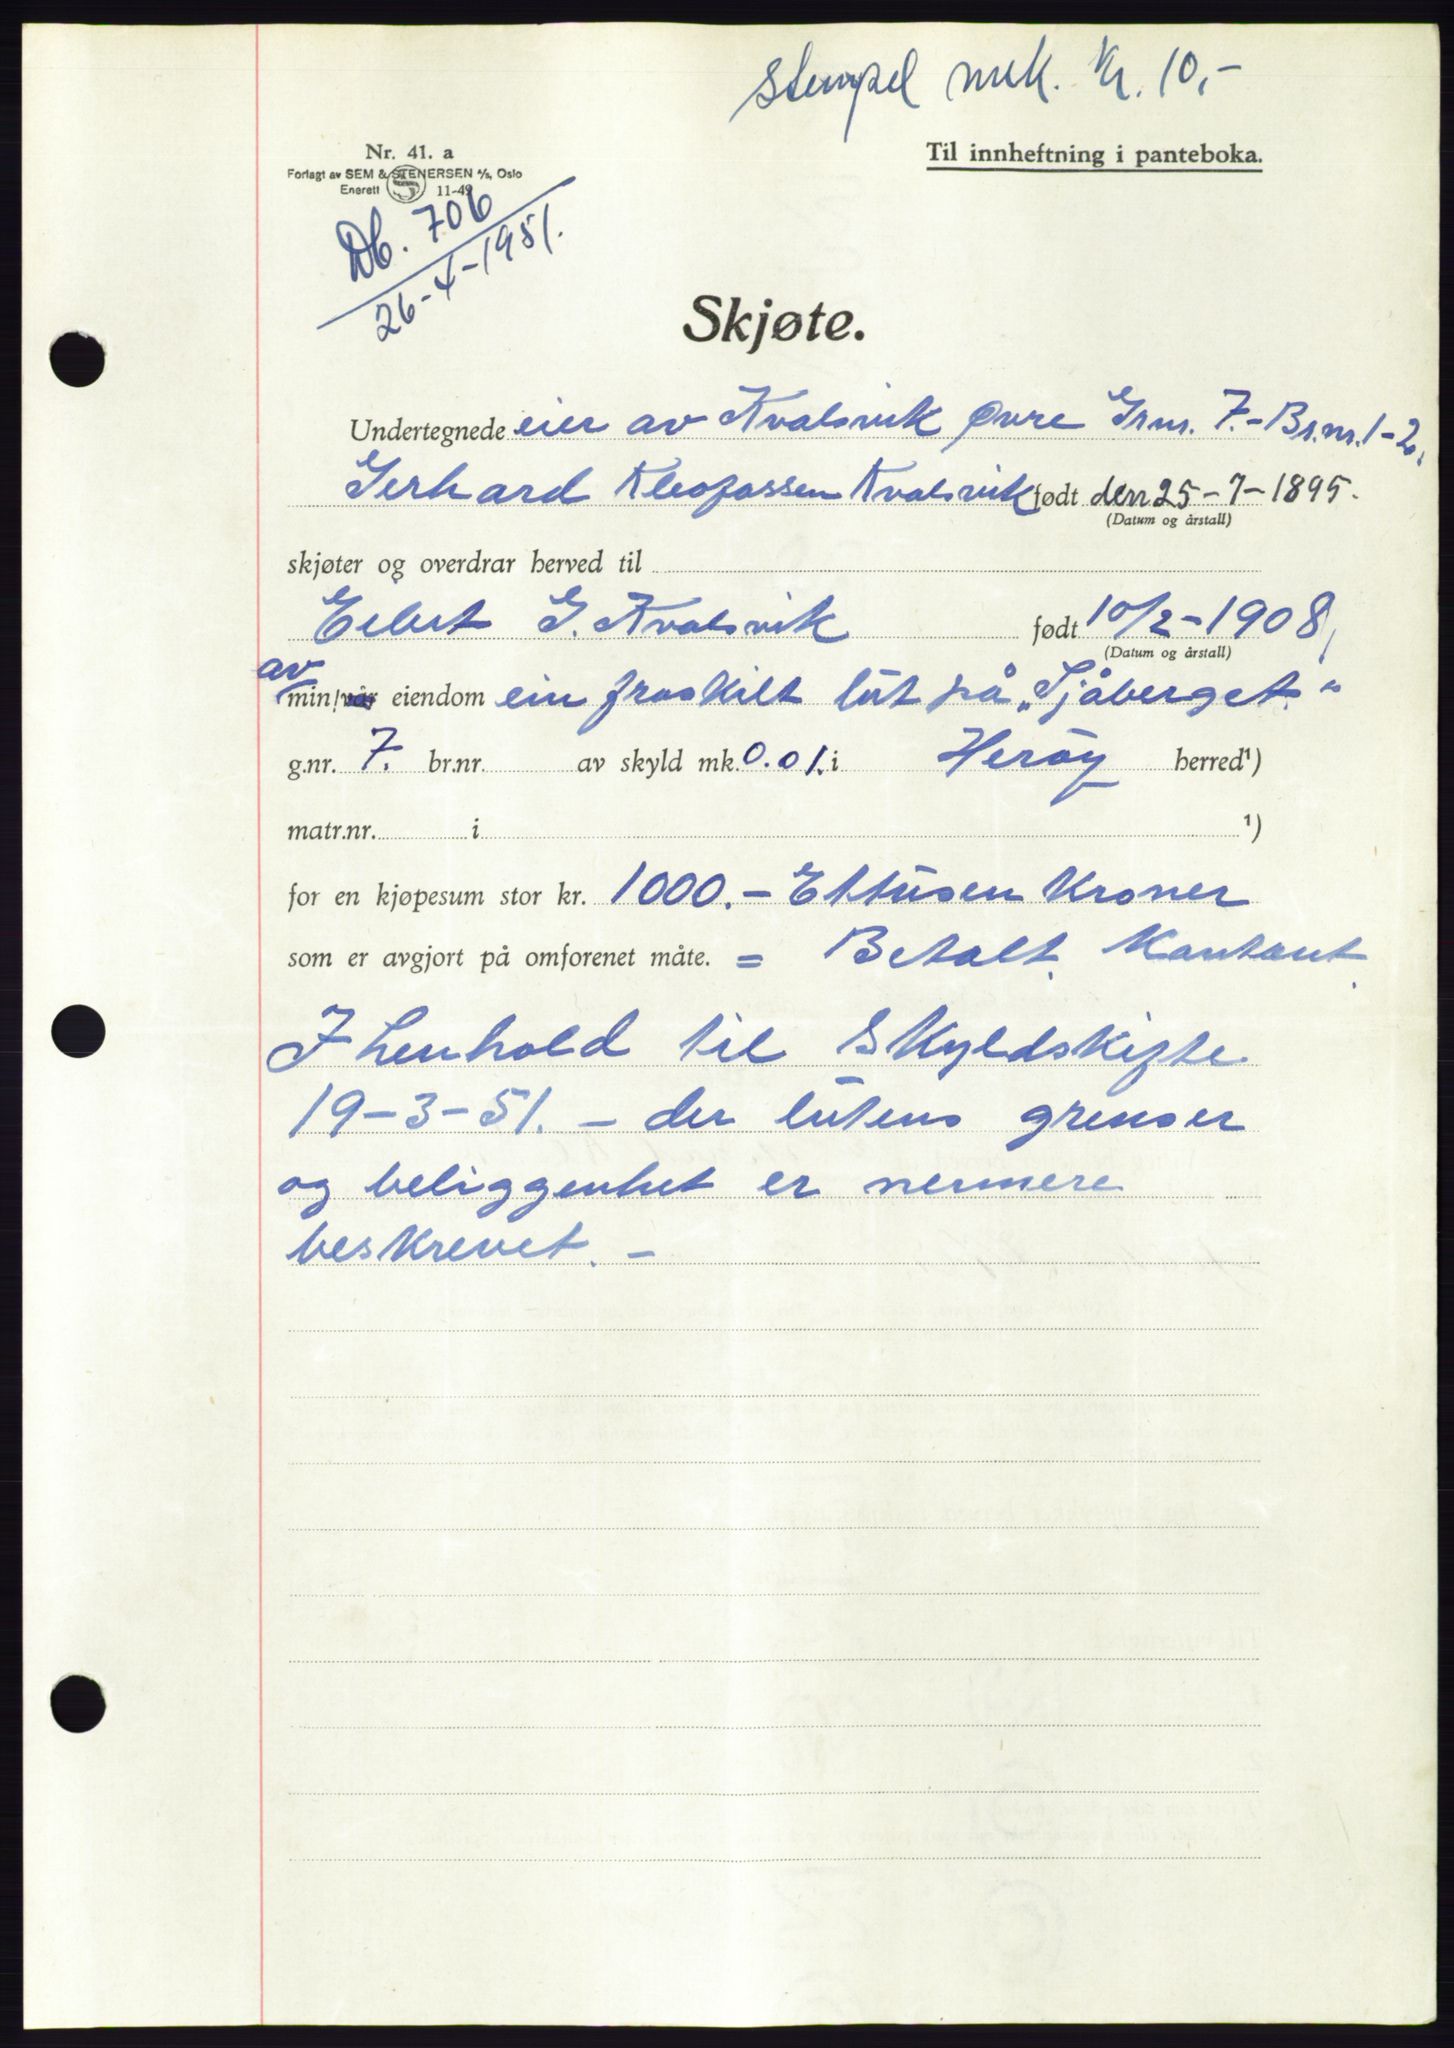 stempel mrk. Kr. 10,-
Nr. 41. a
Til innheftning i panteboka.
Forlagt av SEM & STENERSEN A/S, Oslo
Enerett 11-49
Db. 706
26-4-1951.
Skjøte.
Undertegnede eier av Kvalsvik Øvre Grnr. 7.-Br.nr. 1-2,
Gerhard Kleofassen Kvalsvik født den 25-7-1895.
(Datum og årstall)
skjøter og overdrar herved til
Eilert G. Kvalsvik født 10/2-1908,
(Datum og årstall)
av
min/vår eiendom ein fraskilt lut på „Sjåberget."
g.nr. 7. br.nr. av skyld mk. 0.01. i Herøy herred¹)
matr.nr. i ¹)
for en kjøpesum stor kr. 1000.- Ettusen Kroner
som er avgjort på omforenet måte. = Betalt Kontant.
I henhold til Skyldskifte
19-3-51. - der lutens grenser
og beliggenhet er nermere
beskrevet. -